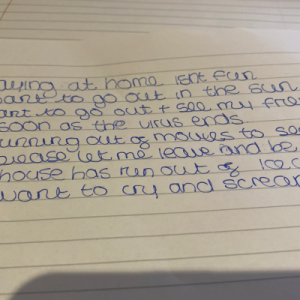 aying at home isnt fun
want to go out in the sun
ant to go out + see my frie
soon as the virus ends
unning out of movies to se
please let me leave and be
house has run out of ice c
want to cry and screa